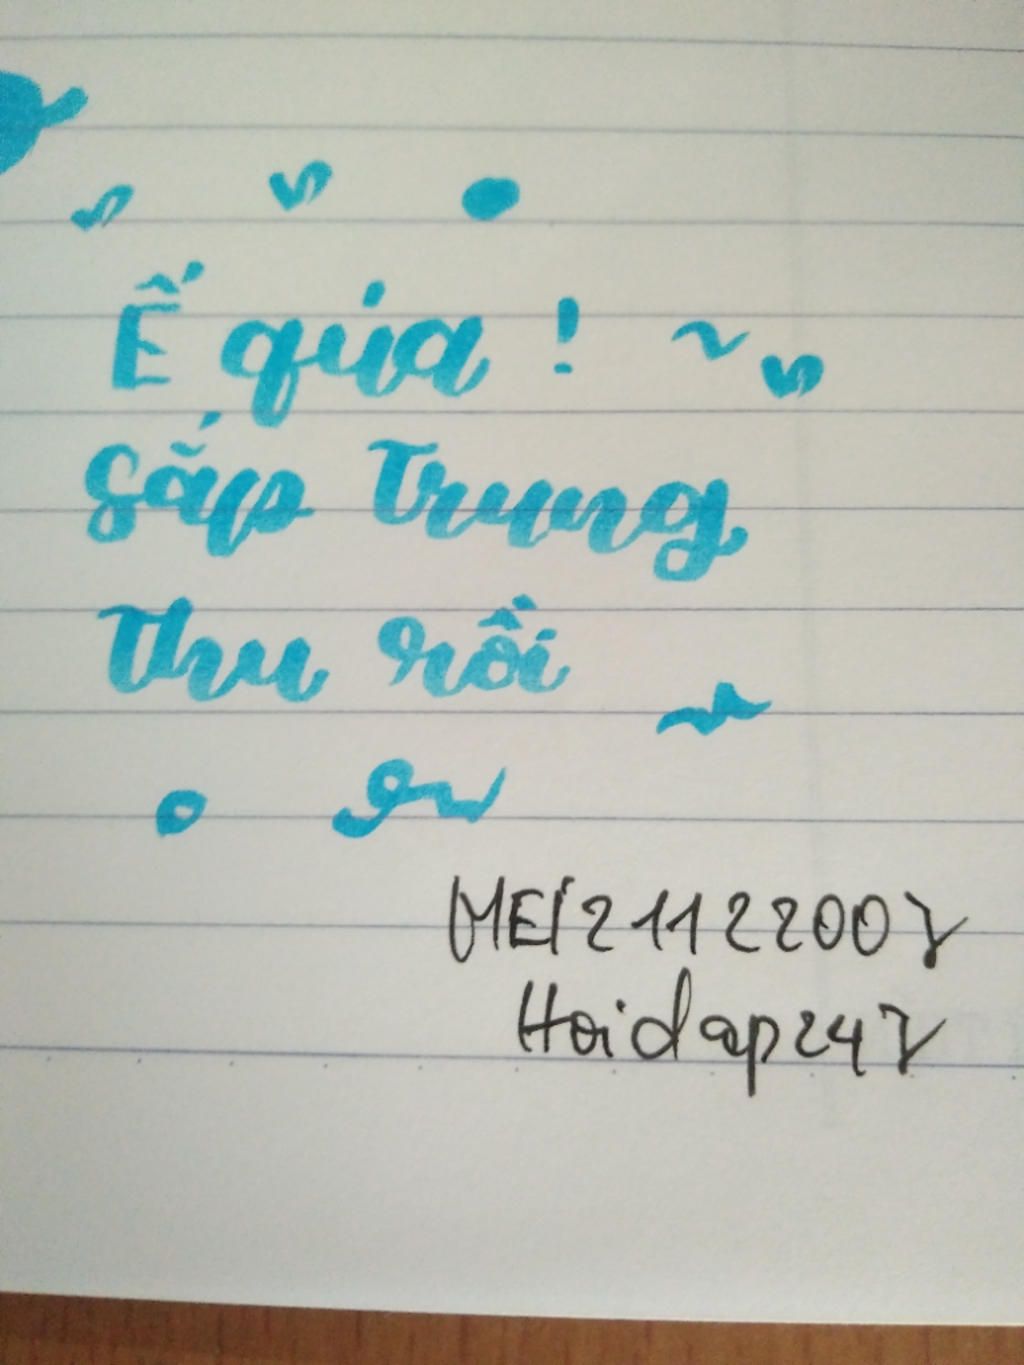 Ế qúa !
sắp Trung
thu rồi
MEI21122007
Hoidap247